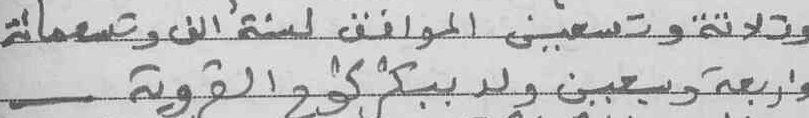 وثلاثة وتسعين الموافق لسنة الف وتسعمائة
واربعة وسبعين ولد ببكركوح القروية